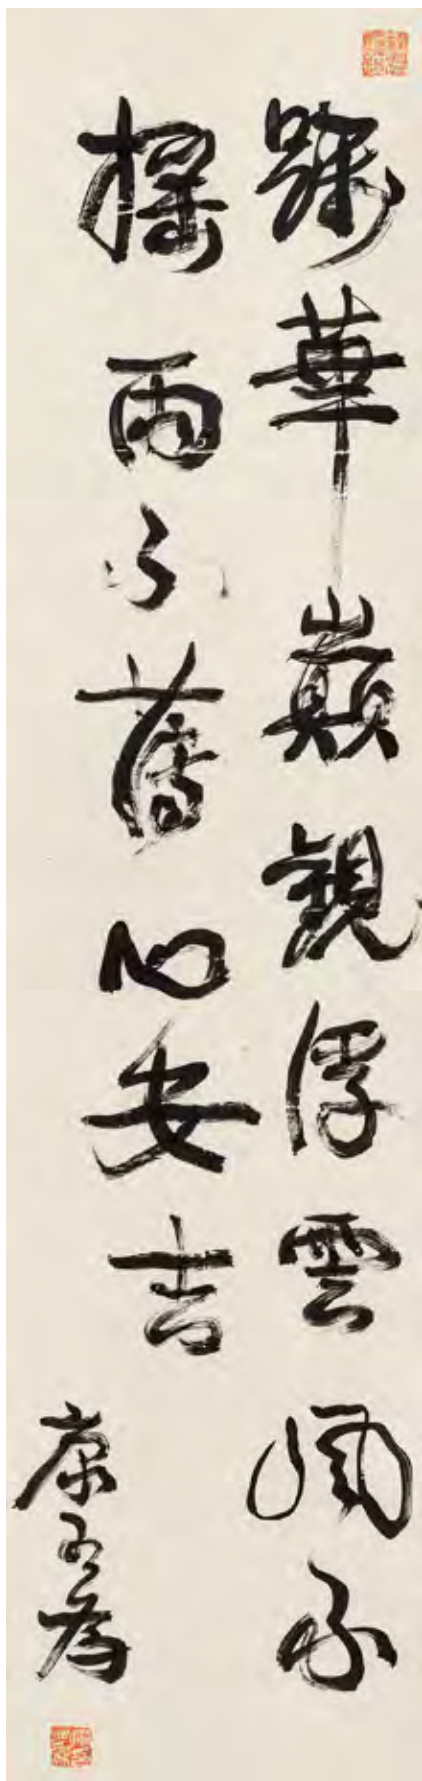 華巔觀浮雲風不
搖雨不心安吉
康有為